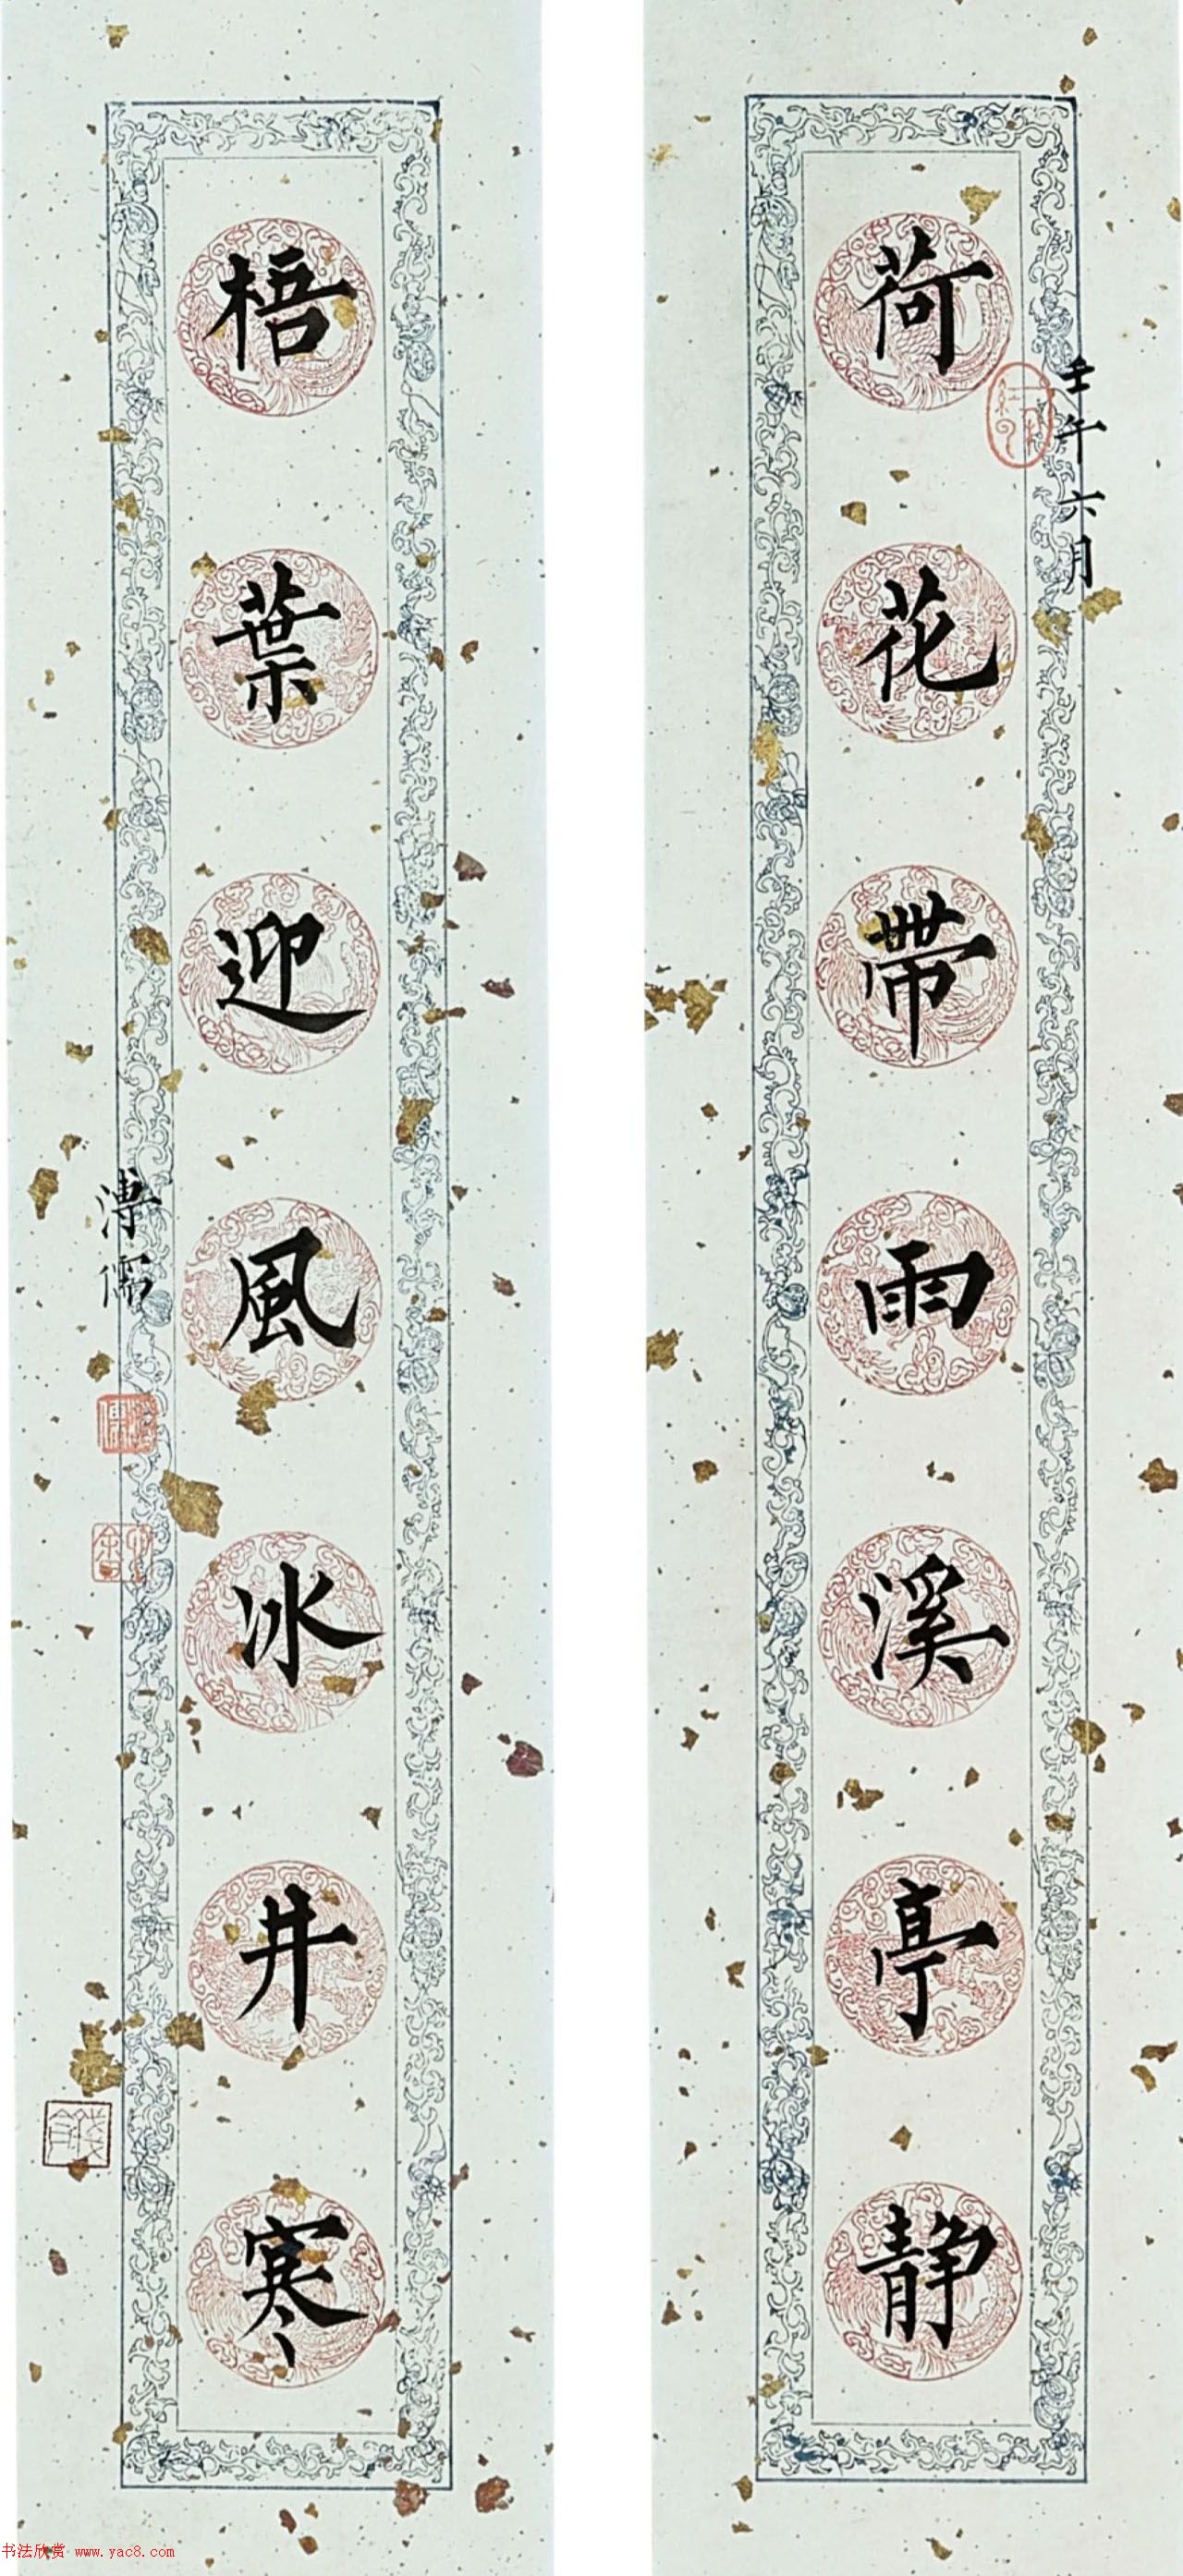 壬午六月
荷花帶雨溪亭静
梧葉迎風冰井寒
溥儒
书法欣赏 www.yac8.com